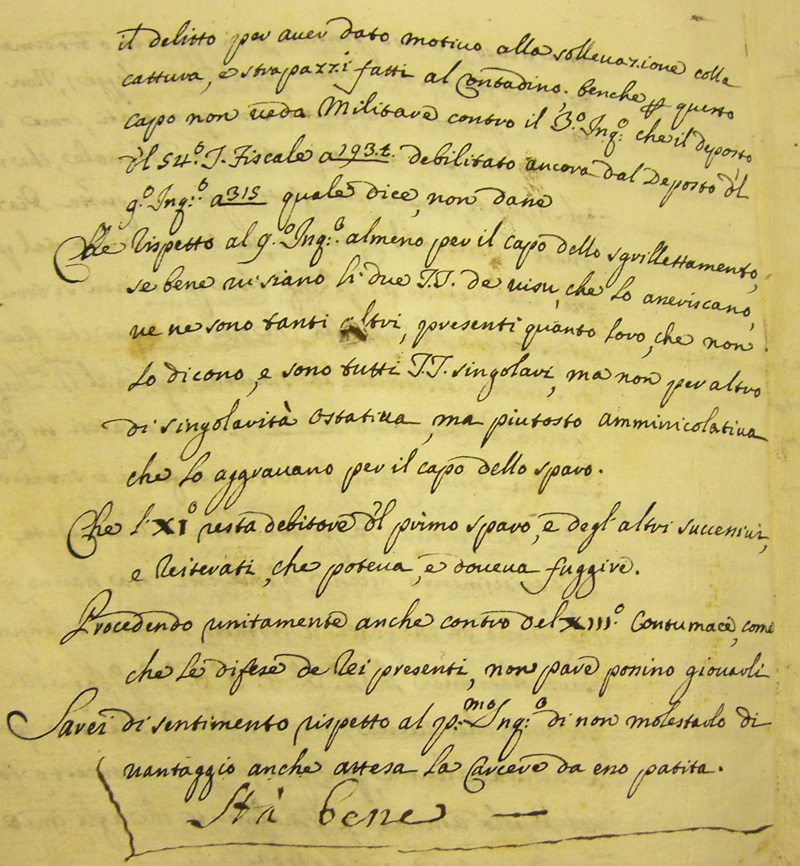 il delitto per auer dato motiuo alla solleuazione colla
cattura, e strapazzi fatti al Contadino; benche p questo
capo non veda Militare contro il 3.º Inq.º che il deposto
dl 54.º T. Fiscale a 293.t. debilitato ancora dal Deposto dl
9.º Inq.º a 315 quale dice, non dane
Che rispetto al 9.º Inq.º almeno per il capo dello sgrillettamento,
se bene ui siano li due T.T. de uisu, che lo aneriscano,
ue ne sono tanti altri, presenti quanto loro, che non
lo dicono, e sono tutti T.T. singolari, ma non per altro
di singolarità ostatiua, ma piutosto amminicolatiua
che lo aggrauano per il capo dello sparo.
Che l'XIº resta debitore dl primo sparo, e degl'altri successiui,
e reiterati, che poteua, e doueua fuggire.
Procedendo unitamente anche contro del XIII.º Contumace, come
che le difese de rei presenti, non pare possino giouarli
Sarei di sentimento rispetto al p.mo Inq.º di non molestarlo di
uantaggio anche attesa la Carcere da esso patita.
Stà bene —